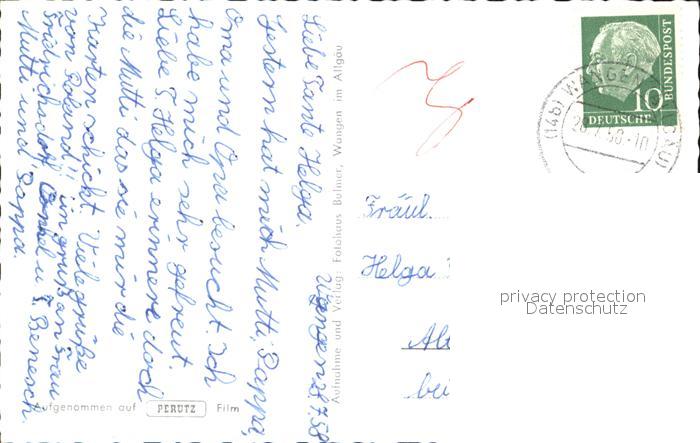 Wangen 28.7.58
Liebe Tante Helga.
Gestern hat mich Mutti, Pappa,
Oma und Opa besucht. Ich
habe mich sehr gefreut.
Liebe T. Helga erinnere doch
die Mutti das sie mir die
Karten schickt. Viele grüße
von Roland!!
Mutti und Pappa.
Aufnahme und Verlag: Fotohaus Bolner, Wangen im Allgäu
Aufgenommen auf PERUTZ Film
DEUTSCHE BUNDESPOST
10
(14b) WANGEN
Fräul.
Helga
bei
privacy protection
Datenschutz